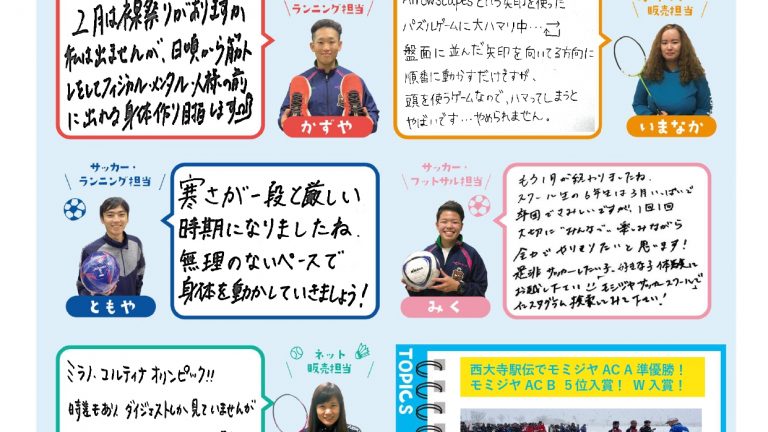 2月は裸祭りがありますね
私は出ませんが、日頃から筋ト
レをしてフィジカル・メンタル・人様の前
に出れる身体作り目指します
ランニング担当
かずや
Arrowscapesという矢印を使った
パズルゲームに大ハマり中…
盤面に並んだ矢印を向いてる方向に
順番に動かすだけですが、
頭を使うゲームなので、ハマってしまうと
やばいです…やめられません。
販売担当
いまなか
サッカー・
ランニング担当
ともや
寒さが一段と厳しい
時期になりましたね.
無理のないペースで
身体を動かしていきましょう!
サッカー・
フットサル担当
みく
もう1月が終わりましたね.
スクール生の6年生は3月いっぱいで
卒団でさみしいですが、1回1回
大切に"みんなで"楽しみながら
全力でやりきりたいと思います!
是非サッカーしたい子、好きな子体験に
お越し下さい!! モミジヤサッカースクールで
インスタグラム検索してみて下さい!
ミラノ・コルティナオリンピック!!
時差もあり ダイジェストしか見ていませんが
ネット
販売担当
TOPICS
西大寺駅伝でモミジヤ AC A 準優勝!
モミジヤ AC B 5位入賞! W入賞!